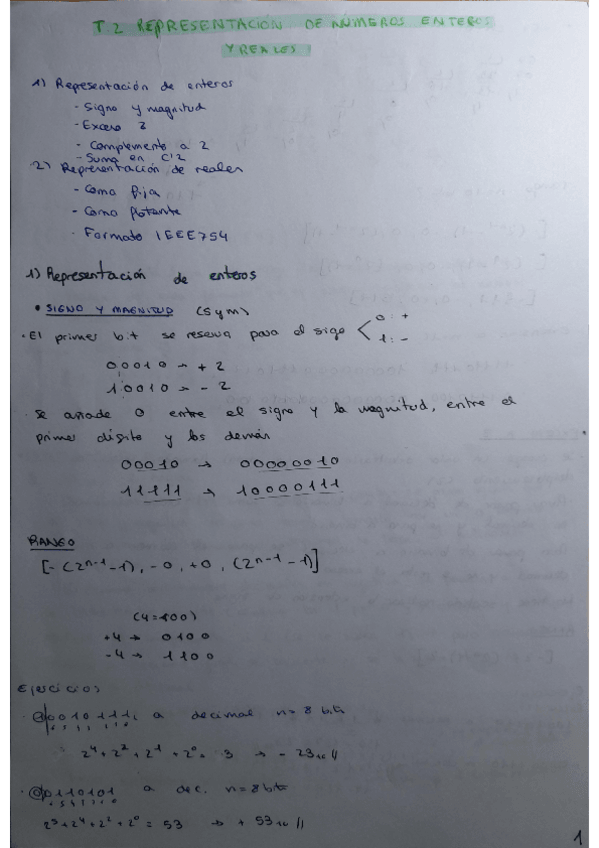 T.2 REPRESENTACIÓN DE NÚMEROS ENTEROS
Y REALES
1) Representación de enteros
- Signo y magnitud
- Exceso Z
- Complemento a 2
- Suma en C'2
2) Representación de reales
- Coma fija
- Coma flotante
- Formato IEEE754
1) Representación de enteros
• SIGNO Y MAGNITUD (SyM)
· El primer bit se reserva para el sigo < 0: + 1: -
00010 → +2
10010 → -2
· Se añade 0 entre el signo y la magnitud, entre el
primer dígito y los demás
00010 → 00000010
11111 → 10000111
RANGO
[-(2ⁿ⁻¹-1), -0, +0, (2ⁿ⁻¹-1)]
(4=100)
+4 → 0100
-4 → 1100
Ejercicios
a decimal n=8 bits
2⁴+2²+2¹+2⁰ → -23₁₀//
00110101 a dec. n=8 bits
2⁵+2⁴+2²+2⁰ = 53 → +53₁₀//
1